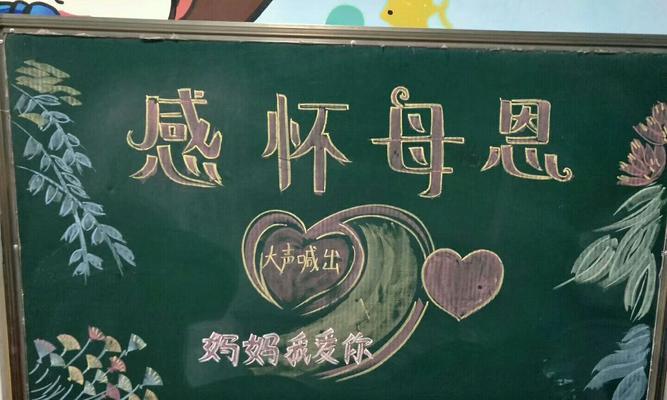 感怀母恩
大声喊出
妈妈我爱你